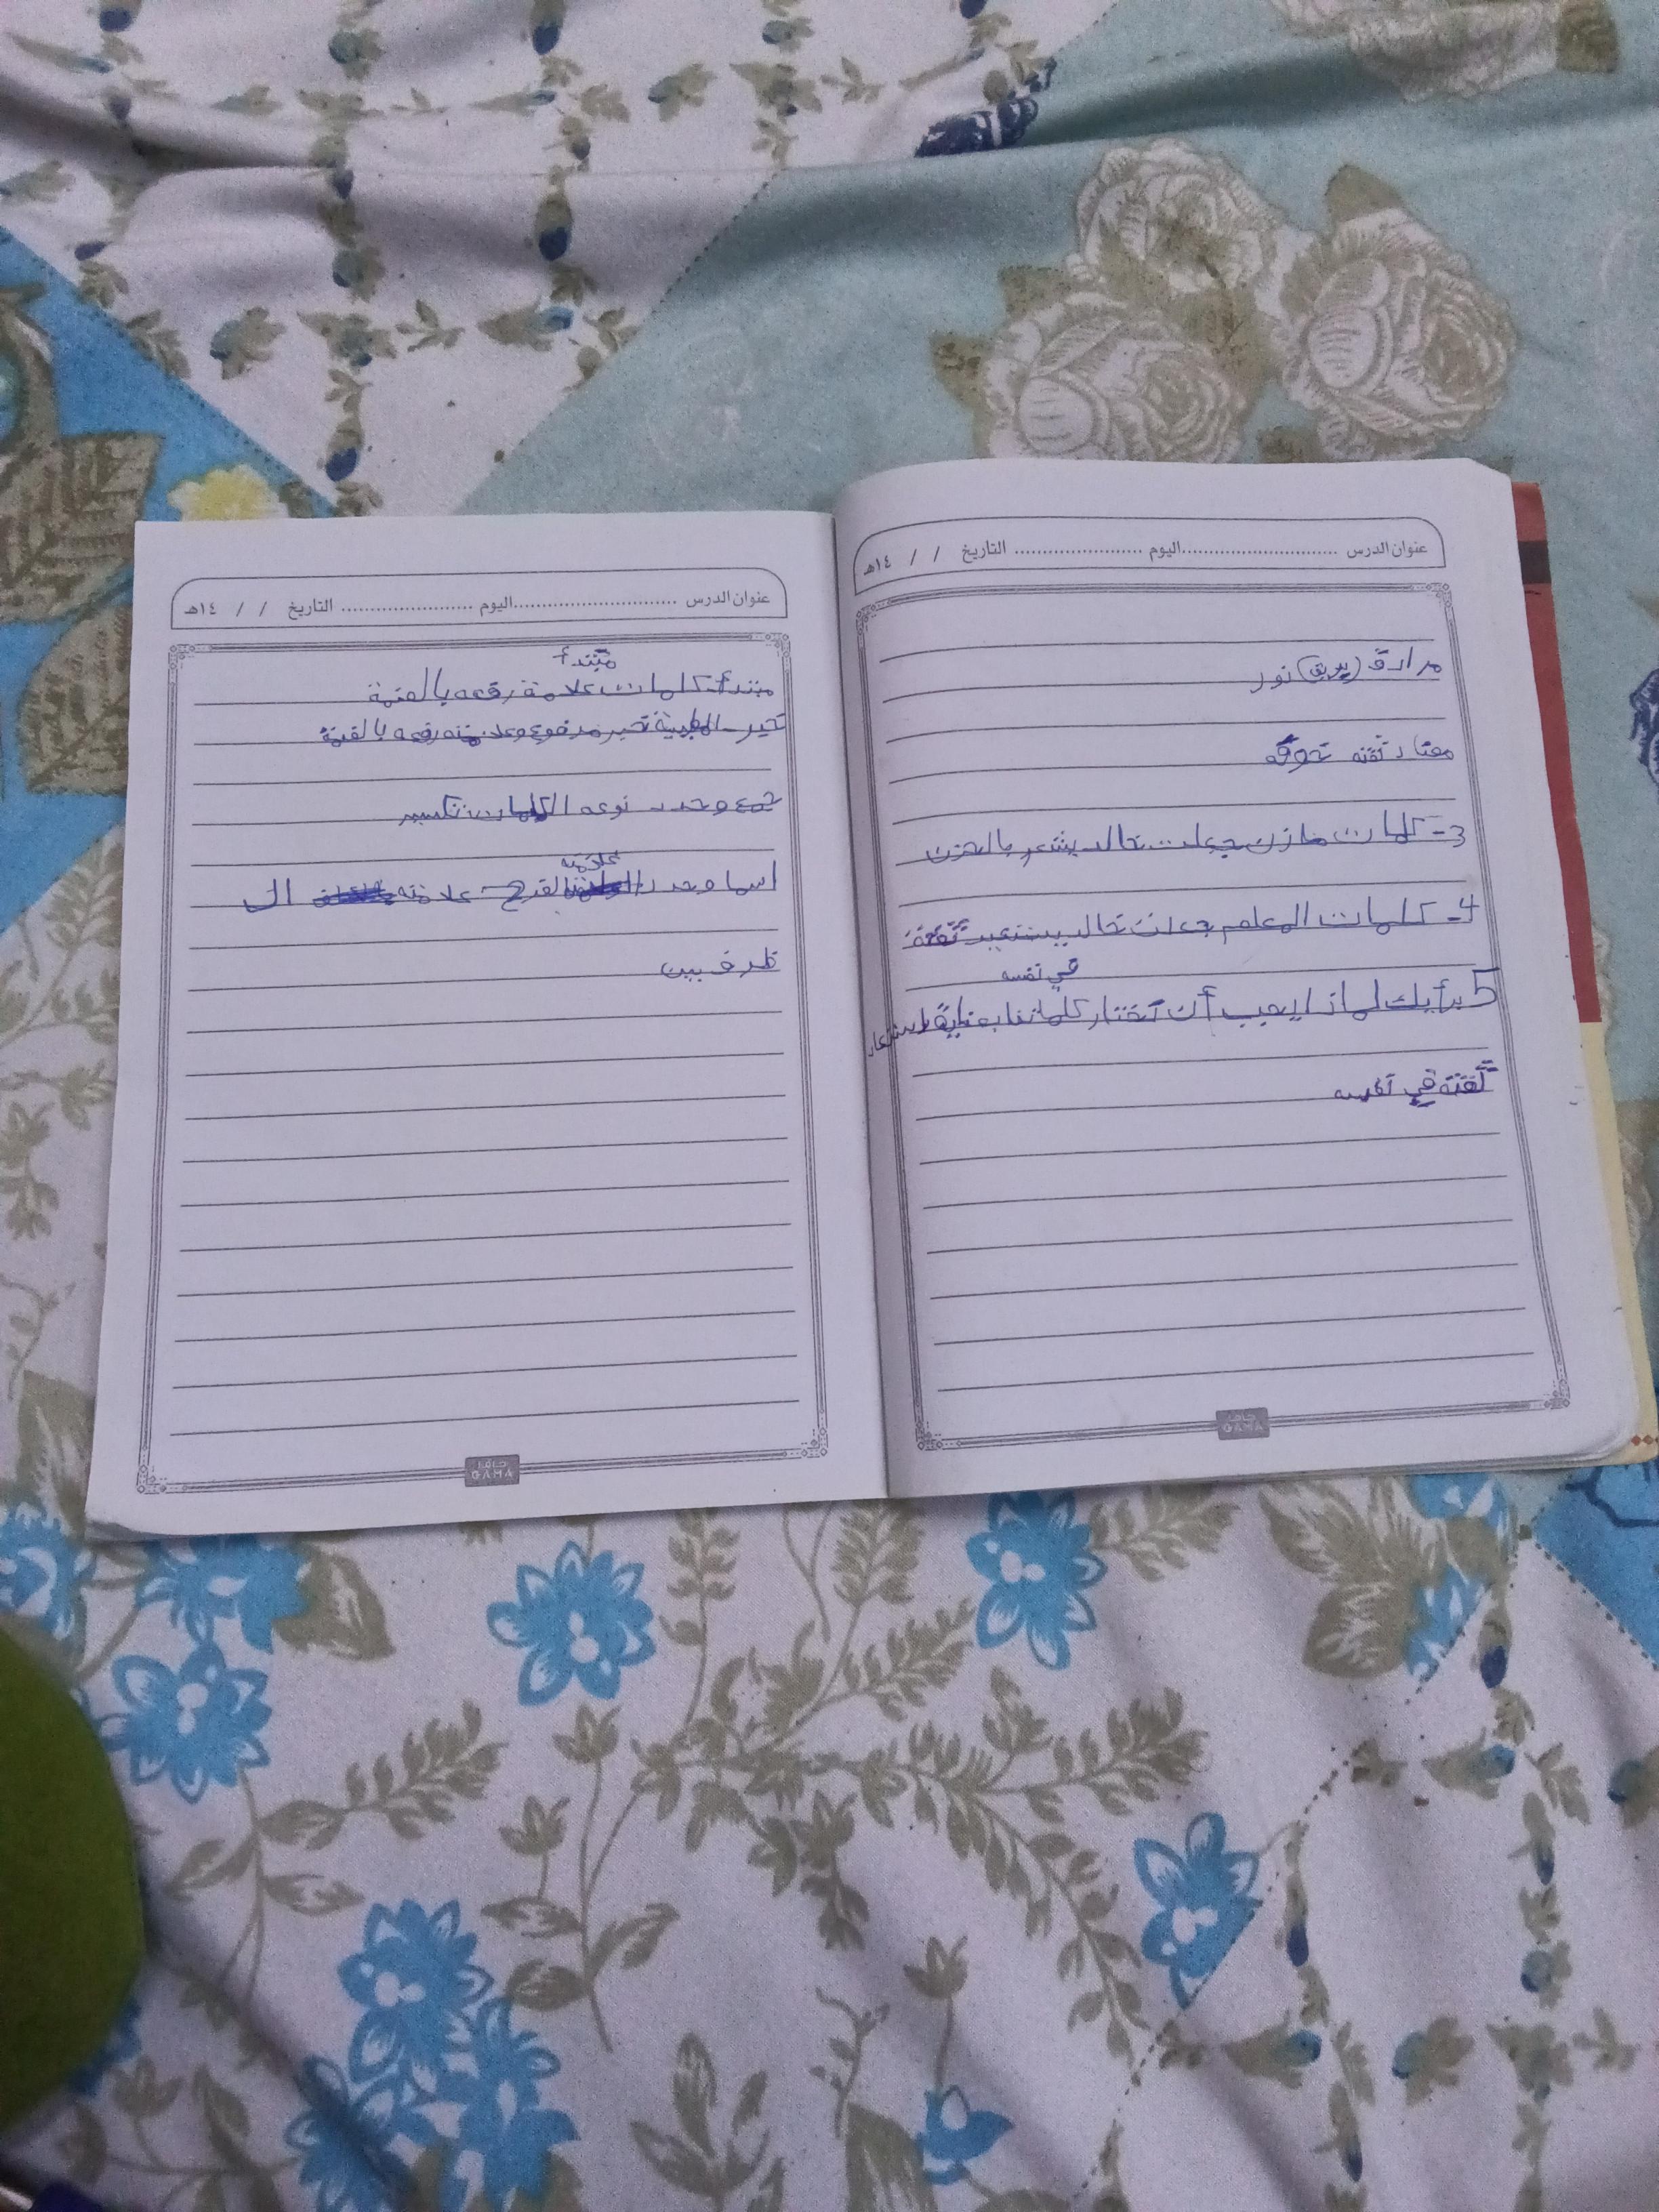 عنوان الدرس ............ اليوم ............ التاريخ / / ١٤هـ
مرادف (بريق) نور
مضاد ثقته خوفه
3- كلمات مازن جعلت خالد يشعر بالحزن
4- كلمات المعلم جعلت خالد يستعيد ثقته
في نفسه
5 برأيك لماذا يجب أن تختار كلماتنا بعناية
ثقته في نفسه
جاما
GAMA
عنوان الدرس ............ اليوم ............ التاريخ / / ١٤هـ
مبتدأ
مبتدأ - كلمات علامة رفعه بالضمة
خبر - الطيبة خبر مرفوع وعلامته رفعه بالضمة
جمع وحدد نوعه الكلمات تكسير
علامته
اسما وحدد الفرح - علامته ال
ظرف بين
جاما
GAMA